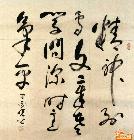 精神到
處文章老
學問深時意
氣平